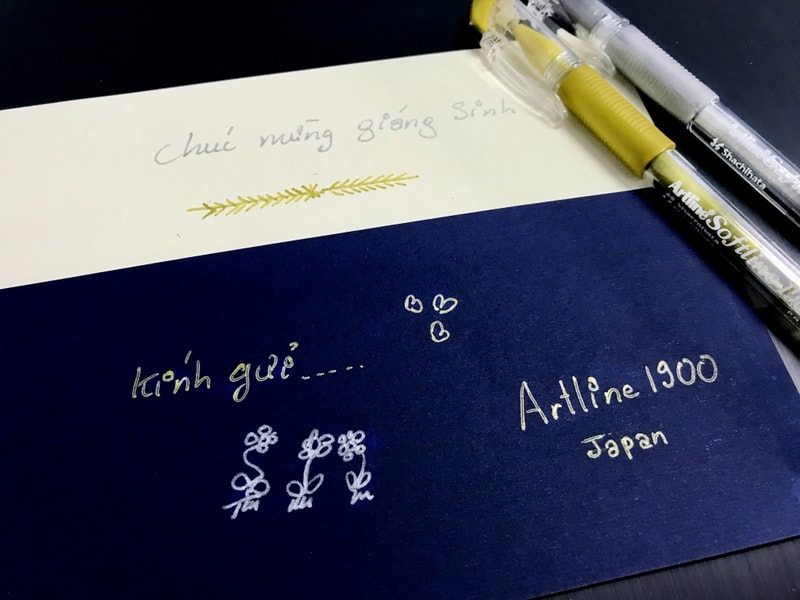 chúc mừng giáng Sinh
kính gửi.....
Artline 1900
Japan
Shachihata
Artline